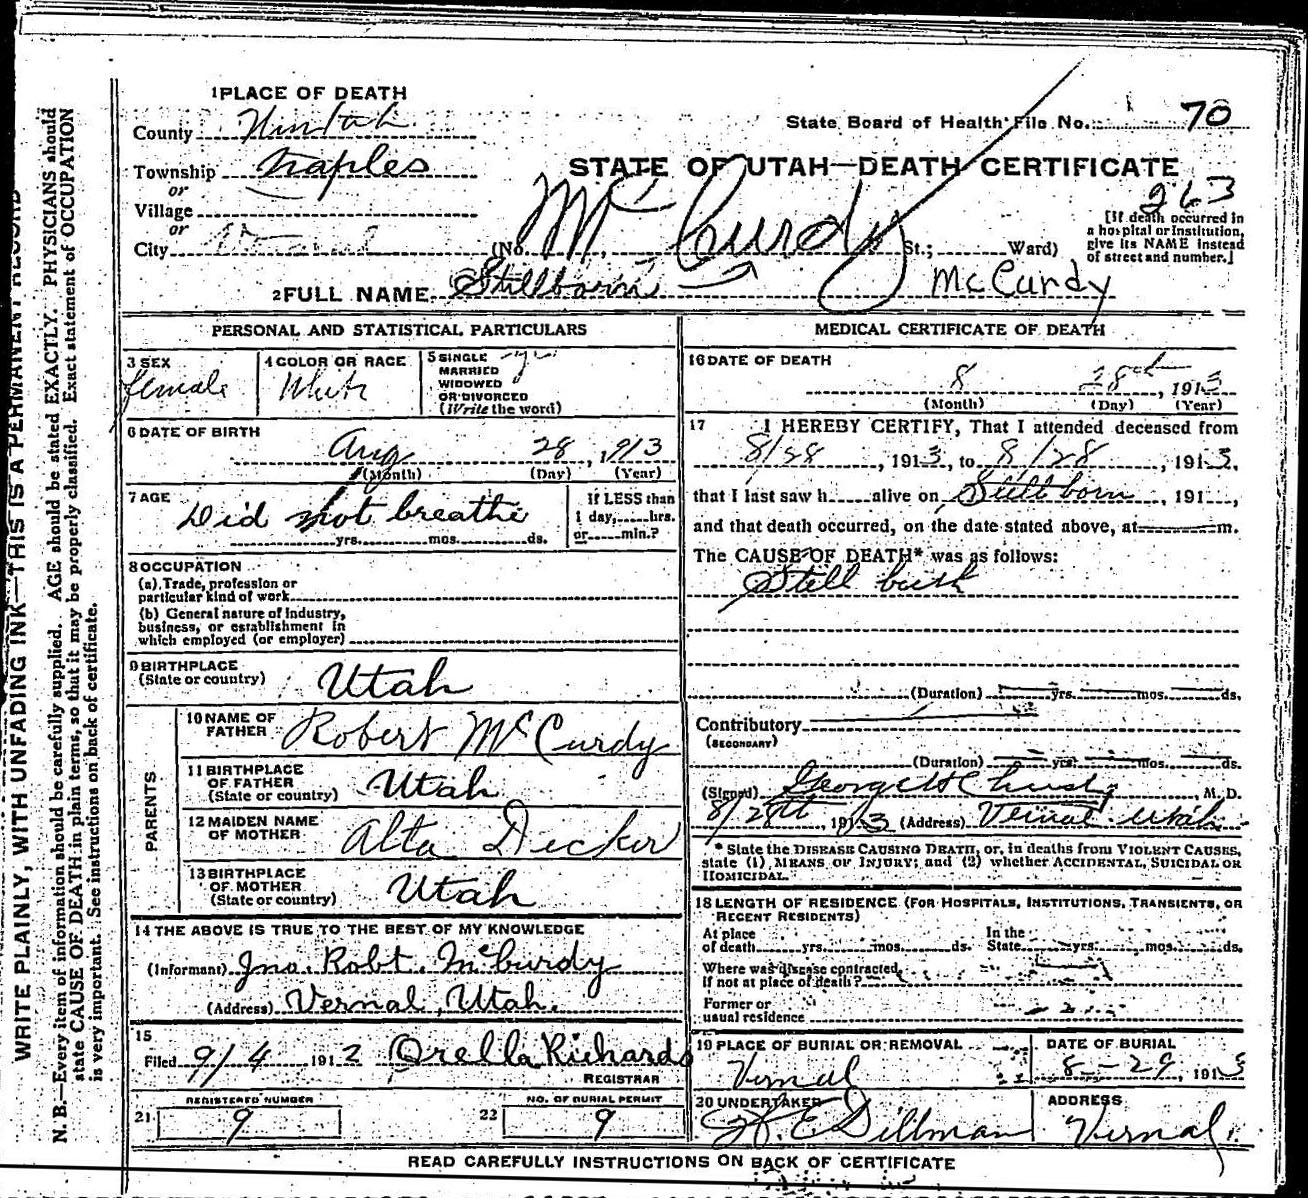 1 PLACE OF DEATH
County Uintah
State Board of Health File No. 70
Township Naples
STATE OF UTAH—DEATH CERTIFICATE
or
263
Village
or
City
(No. St.; Ward)
McCurdy
[If death occurred in
a hospital or institution,
give its NAME instead
of street and number.]
2 FULL NAME Stillborn McCurdy
PERSONAL AND STATISTICAL PARTICULARS
3 SEX
female
4 COLOR OR RACE
White
5 SINGLE
MARRIED
WIDOWED
OR DIVORCED
(Write the word)
6 DATE OF BIRTH
Aug 28, 913
(Month) (Day) (Year)
7 AGE
Did not breathe
yrs. mos. ds.
If LESS than
1 day, hrs.
or min.?
8 OCCUPATION
(a) Trade, profession or
particular kind of work
(b) General nature of industry,
business, or establishment in
which employed (or employer)
9 BIRTHPLACE
(State or country) Utah
PARENTS
10 NAME OF
FATHER Robert McCurdy
11 BIRTHPLACE
OF FATHER
(State or country) Utah
12 MAIDEN NAME
OF MOTHER Alta Decker
13 BIRTHPLACE
OF MOTHER
(State or country) Utah
14 THE ABOVE IS TRUE TO THE BEST OF MY KNOWLEDGE
(Informant) Jno. Robt. McCurdy
(Address) Vernal, Utah.
15
Filed 9/4 1912 Orella Richards
REGISTRAR
REGISTERED NUMBER
21 9
NO. OF BURIAL PERMIT
22 9
MEDICAL CERTIFICATE OF DEATH
16 DATE OF DEATH
8 28th, 1913
(Month) (Day) (Year)
17 I HEREBY CERTIFY, That I attended deceased from
8/28, 1913, to 8/28, 1913,
that I last saw h alive on Stillborn, 191,
and that death occurred, on the date stated above, at m.
The CAUSE OF DEATH* was as follows:
Still birth
(Duration) yrs. mos. ds.
Contributory
(SECONDARY)
(Duration) yrs. mos. ds.
(Signed) George H Christy, M. D.
8/28th, 1913 (Address) Vernal Utah
* State the DISEASE CAUSING DEATH, or, in deaths from VIOLENT CAUSES,
state (1) MEANS OF INJURY; and (2) whether ACCIDENTAL, SUICIDAL OR
HOMICIDAL.
18 LENGTH OF RESIDENCE (FOR HOSPITALS, INSTITUTIONS, TRANSIENTS, OR
RECENT RESIDENTS)
At place
of death yrs. mos. ds.
In the
State yrs. mos. ds.
Where was disease contracted,
If not at place of death?
Former or
usual residence
19 PLACE OF BURIAL OR REMOVAL
Vernal
DATE OF BURIAL
8-29, 1913
20 UNDERTAKER
W. E Dillman
ADDRESS
Vernal
READ CAREFULLY INSTRUCTIONS ON BACK OF CERTIFICATE
WRITE PLAINLY, WITH UNFADING INK—THIS IS A PERMANENT RECORD
N. B.—Every item of information should be carefully supplied. AGE should be stated EXACTLY. PHYSICIANS should
state CAUSE OF DEATH in plain terms, so that it may be properly classified. Exact statement of OCCUPATION
is very important. See instructions on back of certificate.